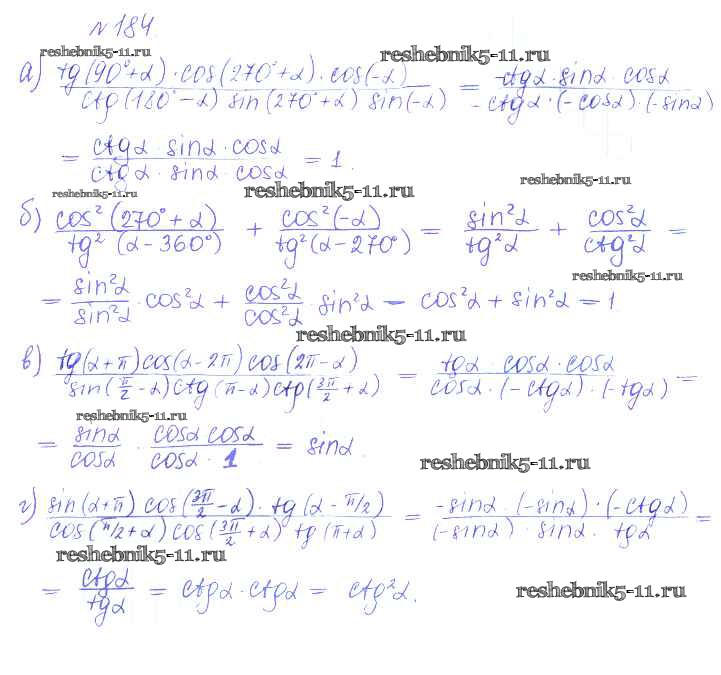 №184.
reshebnik5-11.ru reshebnik5-11.ru
а) tg(90°+α)·cos(270°+α)·cos(-α) / ctg(180°-α) sin(270°+α) sin(-α) = -ctgα·sinα·cosα / -ctgα·(-cosα)·(-sinα)
= ctgα·sinα·cosα / ctgα·sinα·cosα = 1.
reshebnik5-11.ru reshebnik5-11.ru reshebnik5-11.ru
б) cos²(270°+α) / tg²(α-360°) + cos²(-α) / tg²(α-270°) = sin²α / tg²α + cos²α / ctg²α =
reshebnik5-11.ru
= sin²α / sin²α · cos²α + cos²α / cos²α · sin²α = cos²α + sin²α = 1
reshebnik5-11.ru
в) tg(α+π) cos(α-2π) cos(2π-α) / sin(π/2-α) ctg(π-α) ctg(3π/2+α) = tgα·cosα·cosα / cosα·(-ctgα)·(-tgα) =
reshebnik5-11.ru
= sinα / cosα · cosα cosα / cosα·1 = sinα.
reshebnik5-11.ru
г) sin(α+π) cos(3π/2-α)·tg(α-π/2) / cos(π/2+α) cos(3π/2+α) tg(π+α) = -sinα·(-sinα)·(-ctgα) / (-sinα)·sinα·tgα =
reshebnik5-11.ru
= ctgα / tgα = ctgα·ctgα = ctg²α.
reshebnik5-11.ru